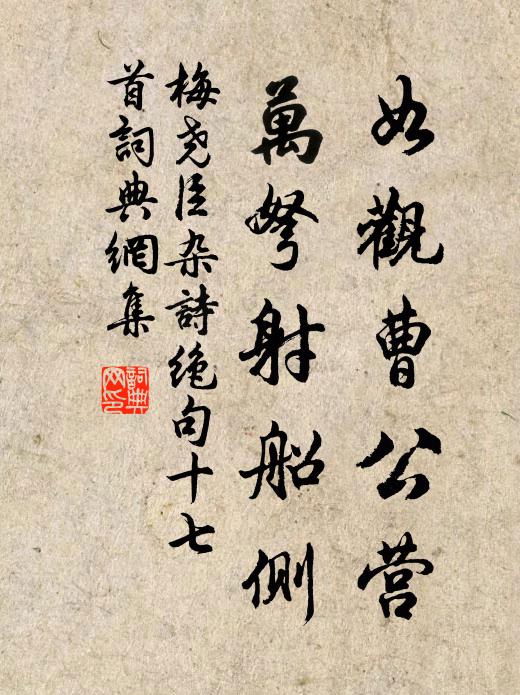 如觀曹公营
萬弩射船側
梅尧臣杂詩绝句十七
首詞典網集
詞典網印